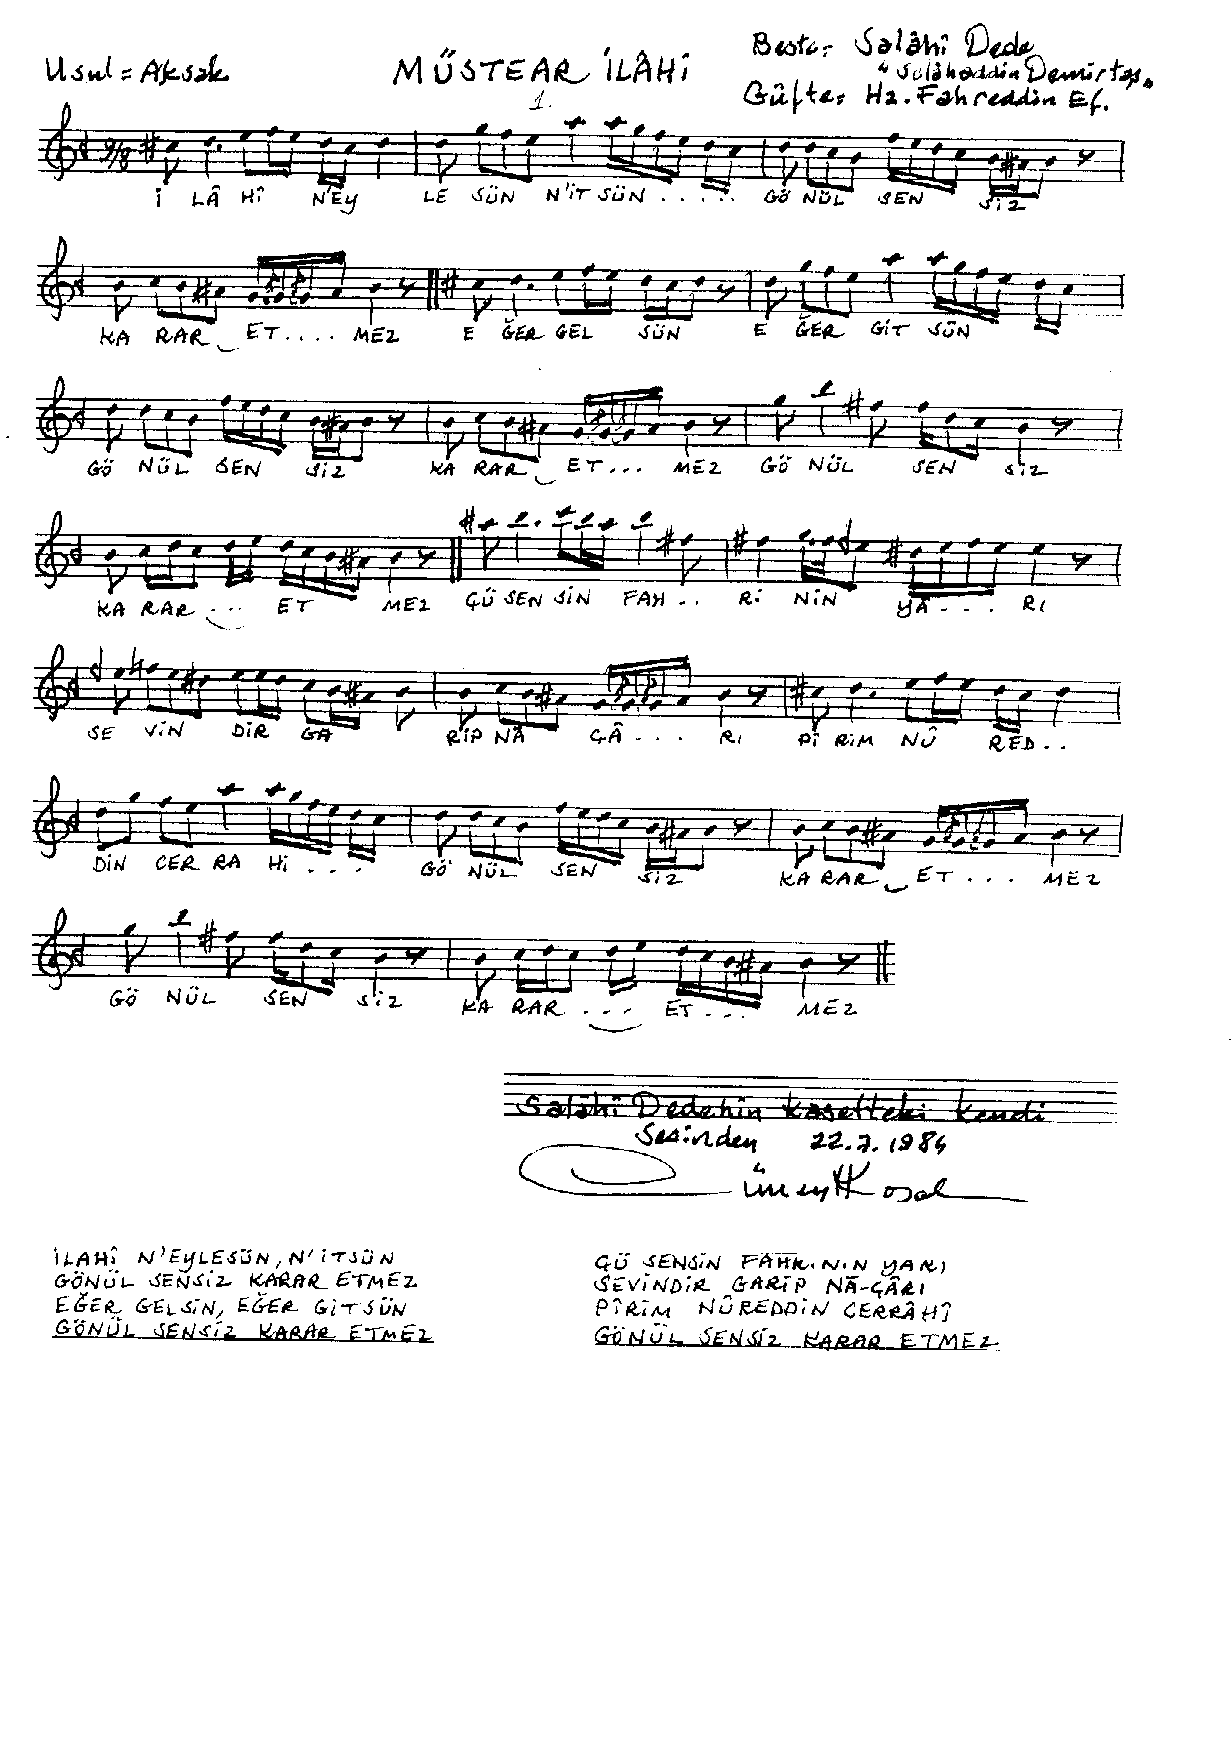 Usul = Aksak
MÜSTEAR İLÂHİ
Beste: Salâhî Dede
"Salâhaddin Demirtaş"
Güfte: Hz. Fahreddin Ef.
1.
9/8
İ LÂ HÎ N'EY LE SÜN N'İT SÜN ..... GÖ NÜL SEN SİZ
KA RAR ET.... MEZ E ĞER GEL SÜN E ĞER GİT SÜN
GÖ NÜL SEN SİZ KA RAR ET... MEZ GÖ NÜL SEN SİZ
KA RAR ... ET MEZ ÇÜ SEN SİN FAH .. Rİ NİN YÂ ... RI
SE VİN DİR GA RİP NÂ ÇÂ .... RI PÎ RİM NÛ RED..
DİN CER RA Hİ ... GÖ NÜL SEN SİZ KA RAR ET ... MEZ
GÖ NÜL SEN SİZ KA RAR ... ET ... MEZ
Salâhî Dedenin kasetteki kendi
Sesinden 22.7.1984
Cüneyt Kosal
İLAHÎ N'EYLESÜN, N'İTSÜN
GÖNÜL SENSİZ KARAR ETMEZ
EĞER GELSİN, EĞER GİTSÜN
GÖNÜL SENSİZ KARAR ETMEZ
ÇÜ SENSİN FAHRININ YARI
SEVİNDİR GARİP NÂ-ÇÂRI
PÎRİM NÛREDDİN CERRÂHÎ
GÖNÜL SENSİZ KARAR ETMEZ